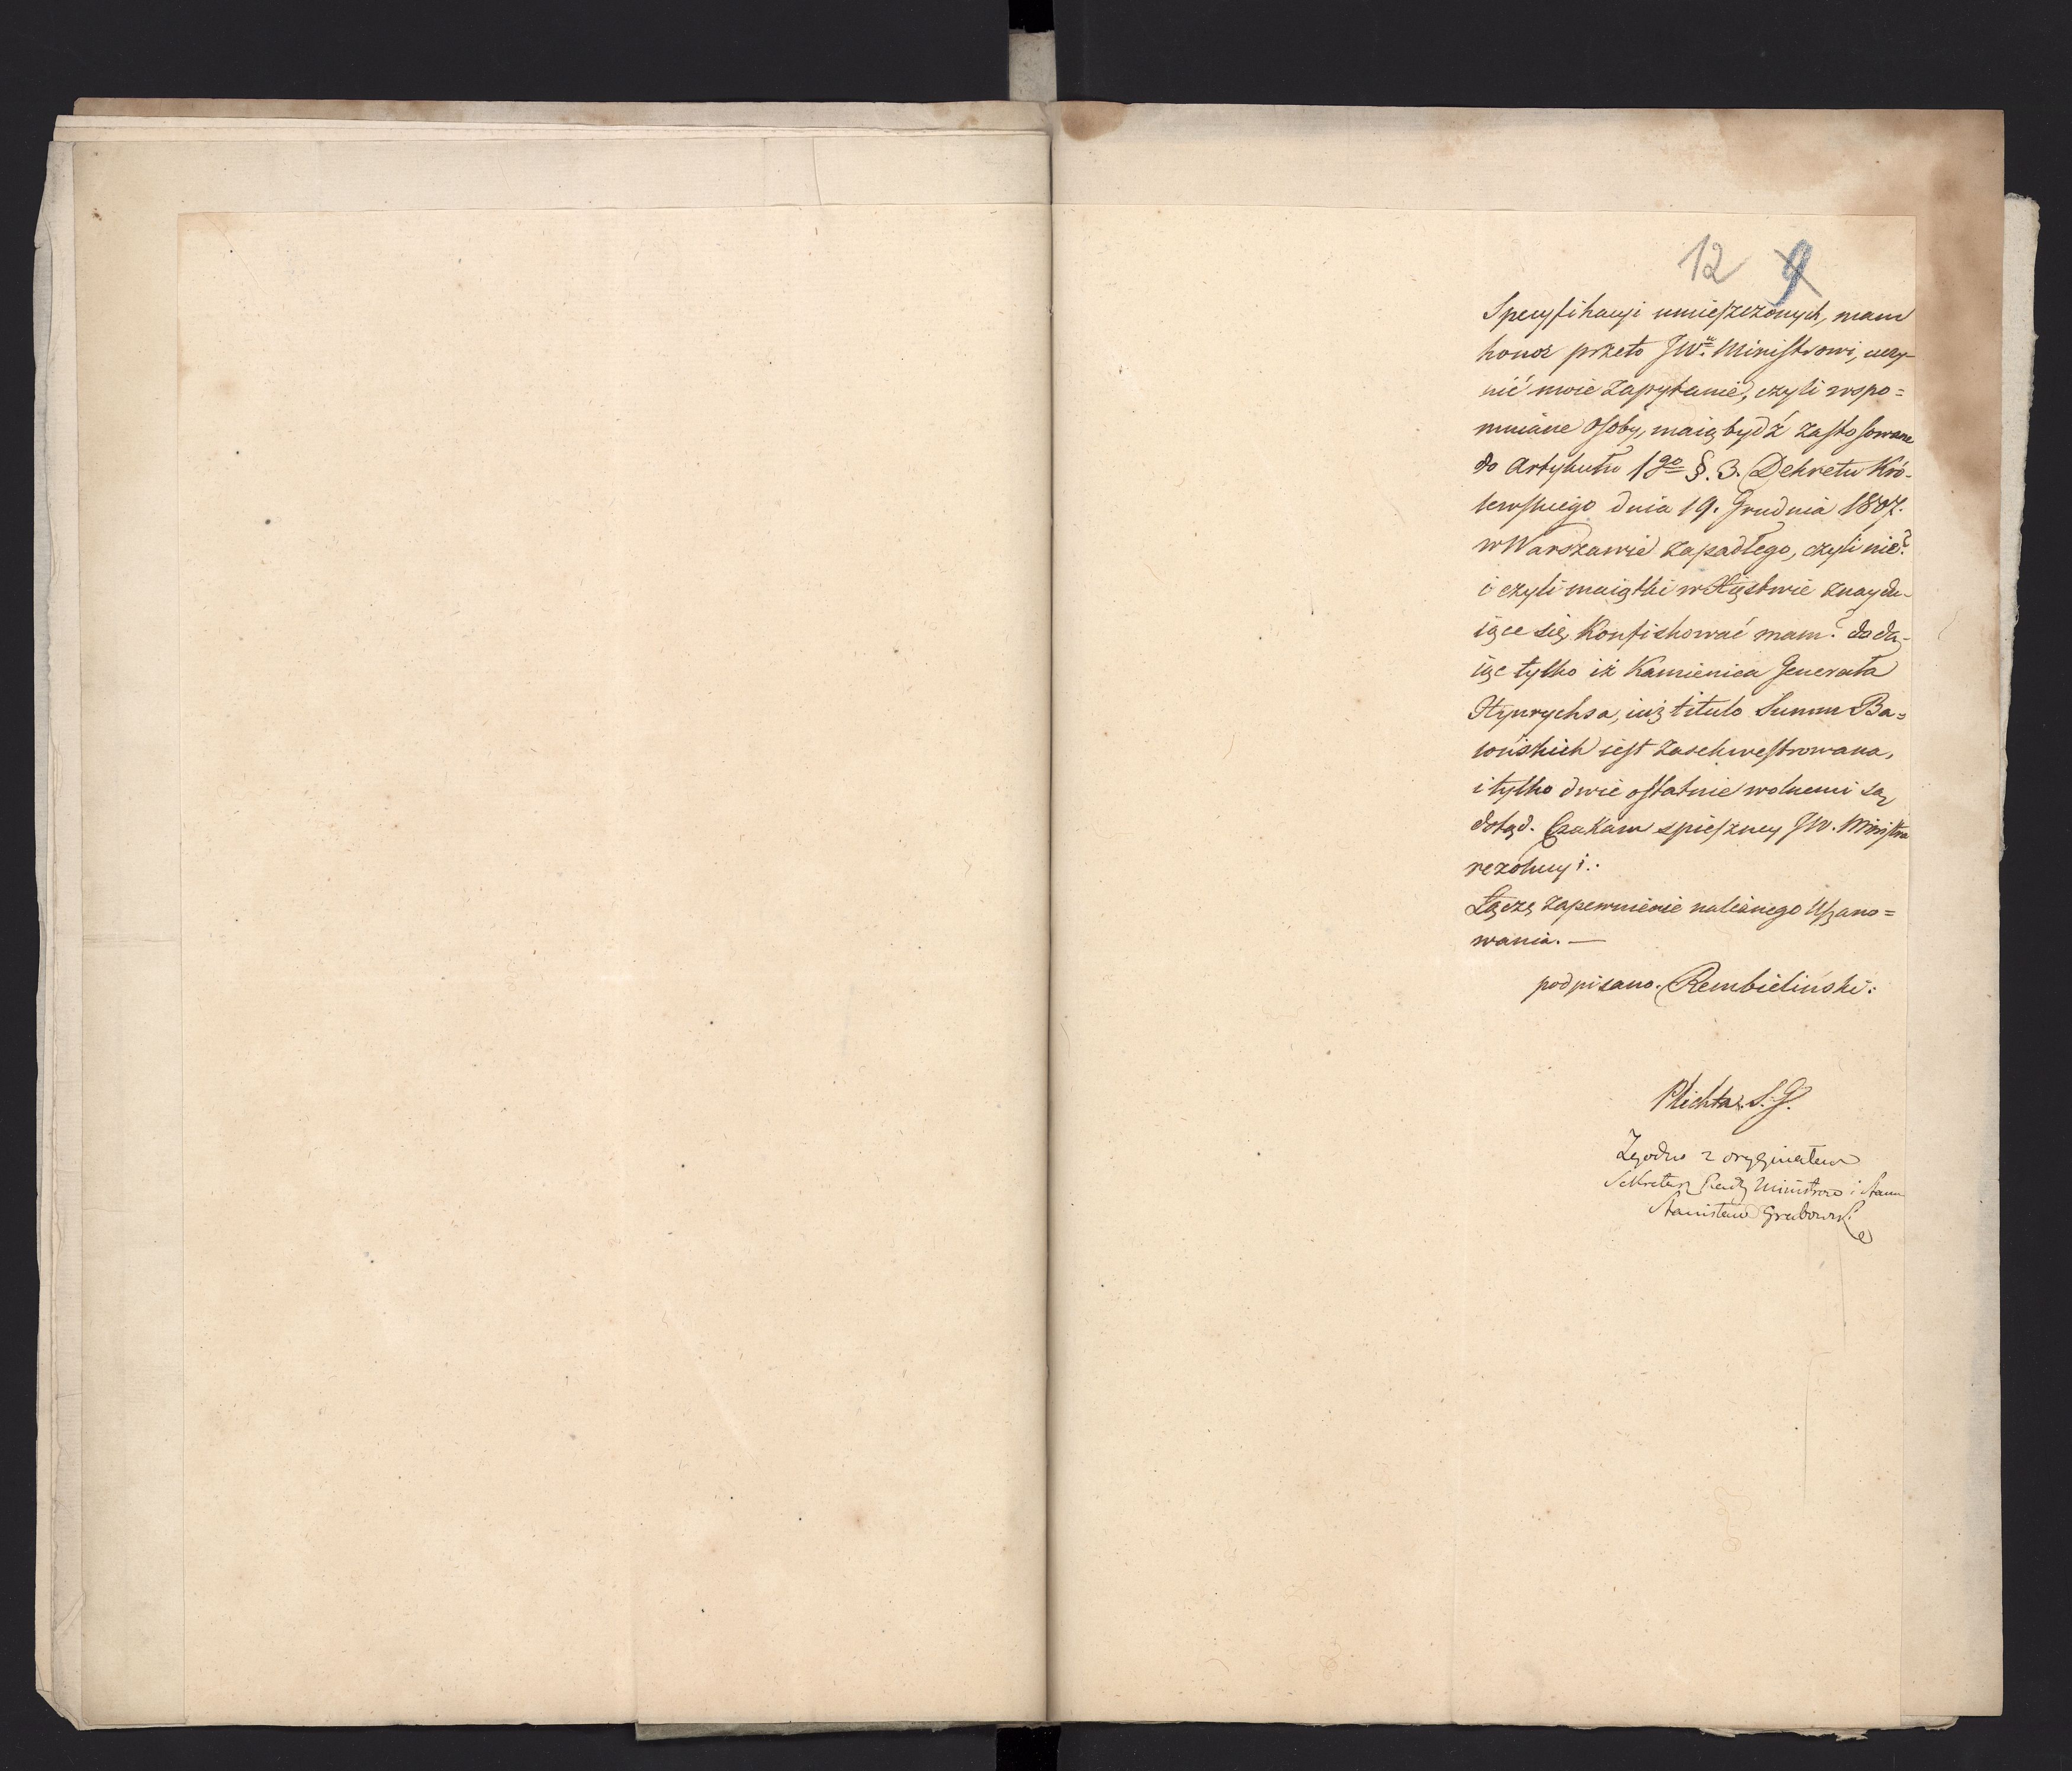 12 9
Specyfikacyi umieszczonych, mam
honor przeto JW. Ministrowi, uczy-
nić moie zapytanie, czyli wspo=
mniane osoby, maią bydź zastosowane
do Artykułu 1go §. 3. Dekretu Kró-
lewskiego dnia 19. Grudnia 1807.
w Warszawie zapadłego, czyli nie?
i czyli maiątki w Xięstwie znaydu-
iące się, Konfiskować mam? doda-
iąc tylko iż Kamienica Generała
iuż titulo Summ Ba=
iońskich iest zasekwestrowana,
i tylko dwie ostatnie wolnemi są
dotąd. Czekam spieszney JW. Ministra
rezolucyi.
Łączę zapewnienie należnego Uszano=
wania. —
podpisano. Rembieliński.
Plichta S. J.
Zgodno z oryginałem
Sekretarz Rady Ministrów i Stanu
Stanisław Grabowski